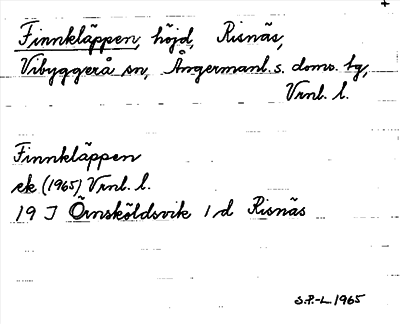 Finnkläppen, höjd, Risnäs,
Vibyggerå sn, Ångermanl. s. doms. tg,
Vrnl. l.
Finnkläppen
ek (1965) Vrnl. l.
19 J Örnsköldsvik 1 d Risnäs
S.P.-L. 1965